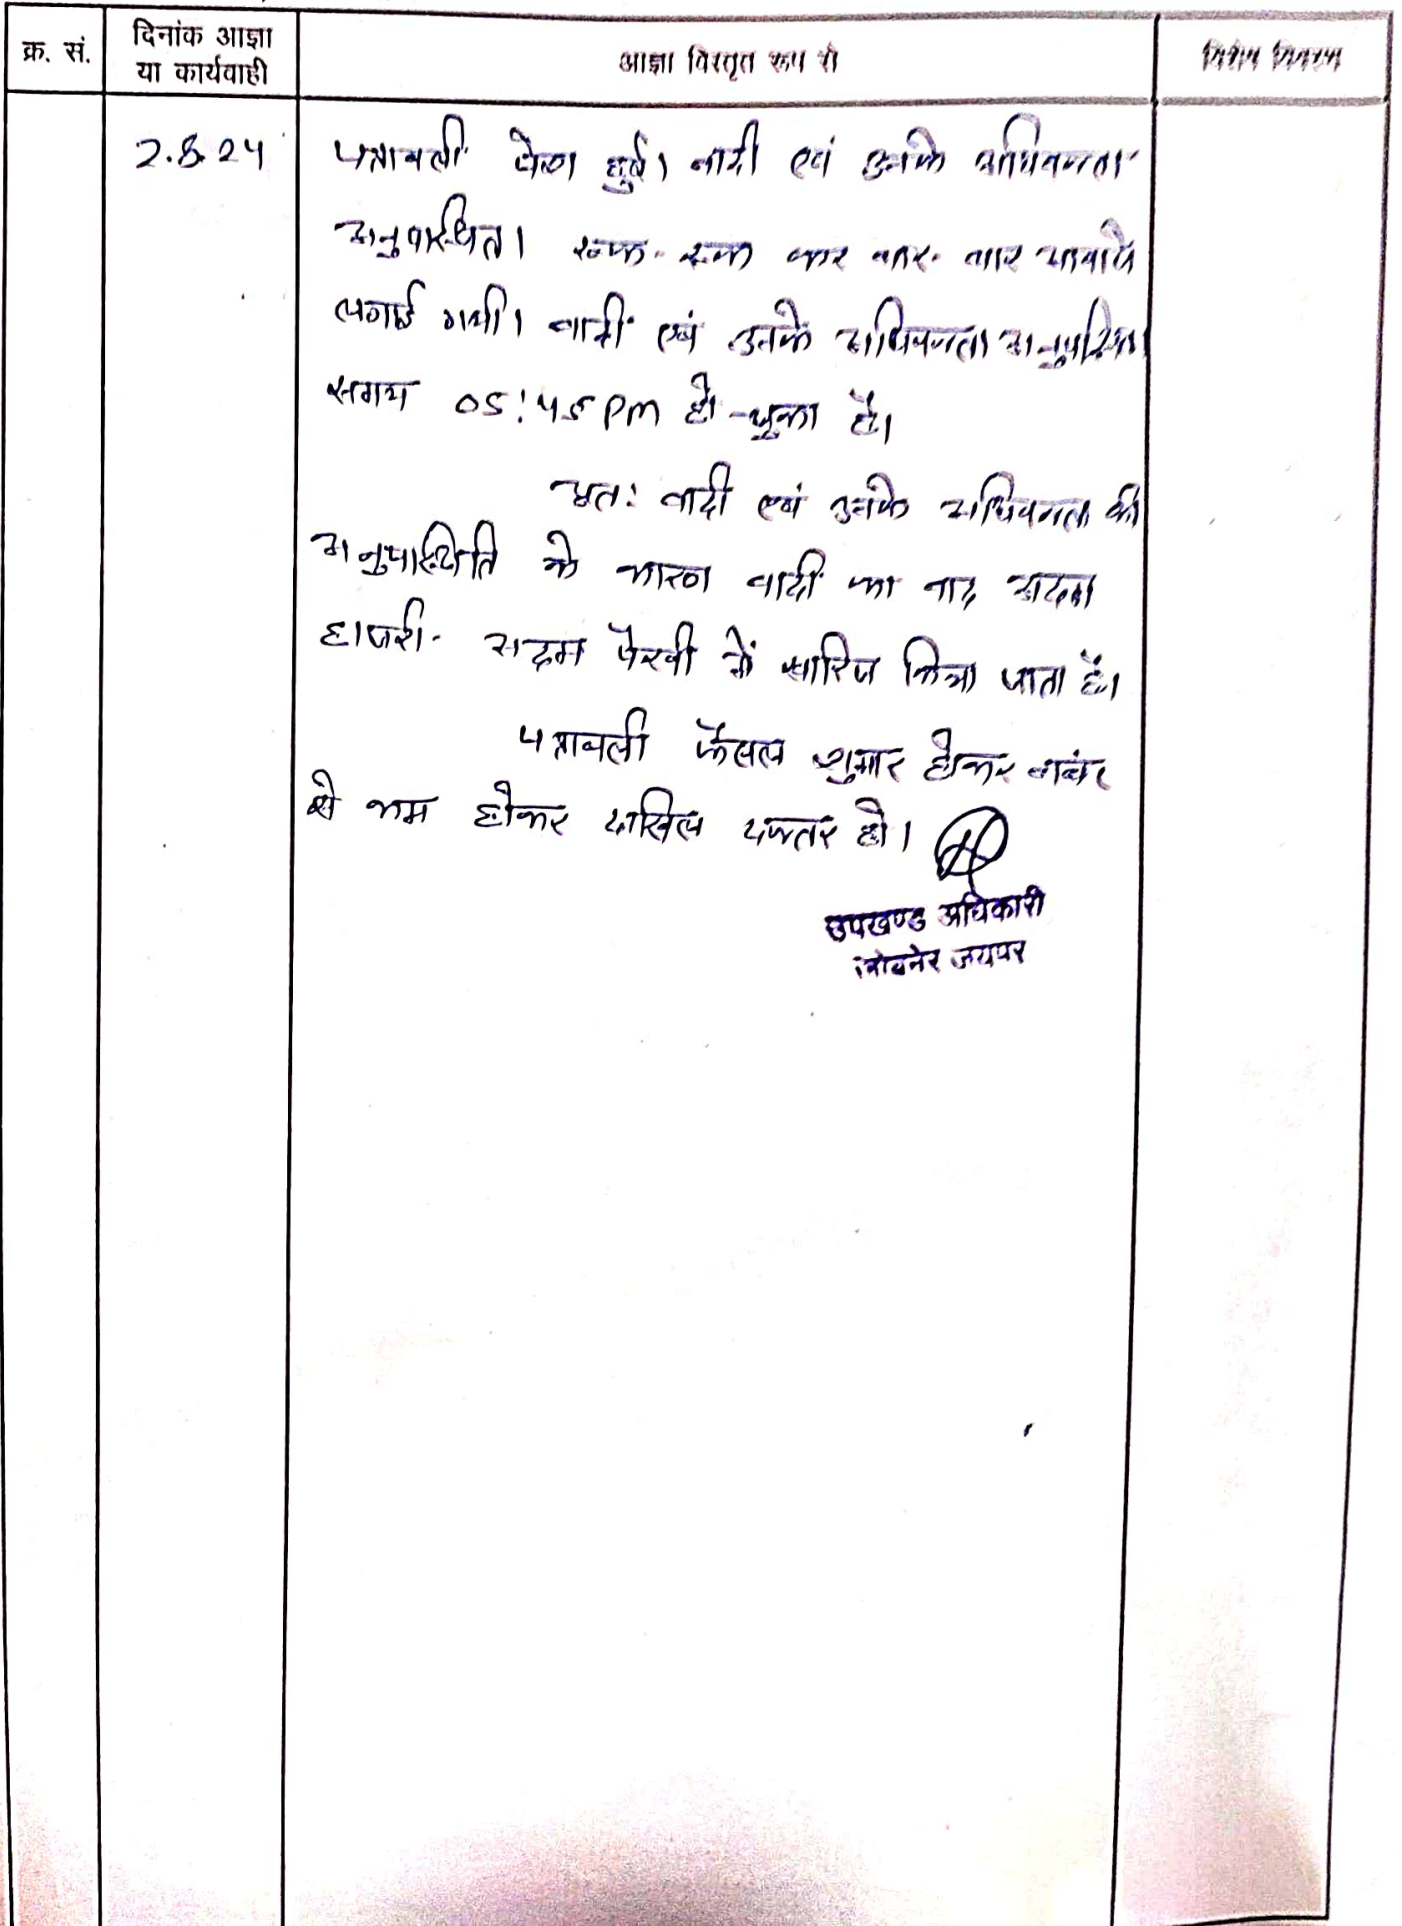 क्र. सं.
दिनांक आज्ञा
या कार्यवाही
आज्ञा विस्तृत रूप से
विशेष विवरण
2.8.24
पत्रावली पेश हुई। वादी एवं उनके अधिवक्ता
अनुपस्थित। रूक-रूक कर बार-बार आवाजे
लगाई गयी। वादी एवं उनके अधिवक्ता अनुपस्थित।
समय 05:45 PM हो चुका है।
अतः वादी एवं उनके अधिवक्ता की
अनुपस्थिति के कारण वादी का वाद अदम
हाजरी-अदम पैरवी में खारिज किया जाता है।
पत्रावली फैसल शुमार होकर नम्बर
से कम होकर दाखिल दफ्तर हो।
उपखण्ड अधिकारी
जोबनेर जयपुर